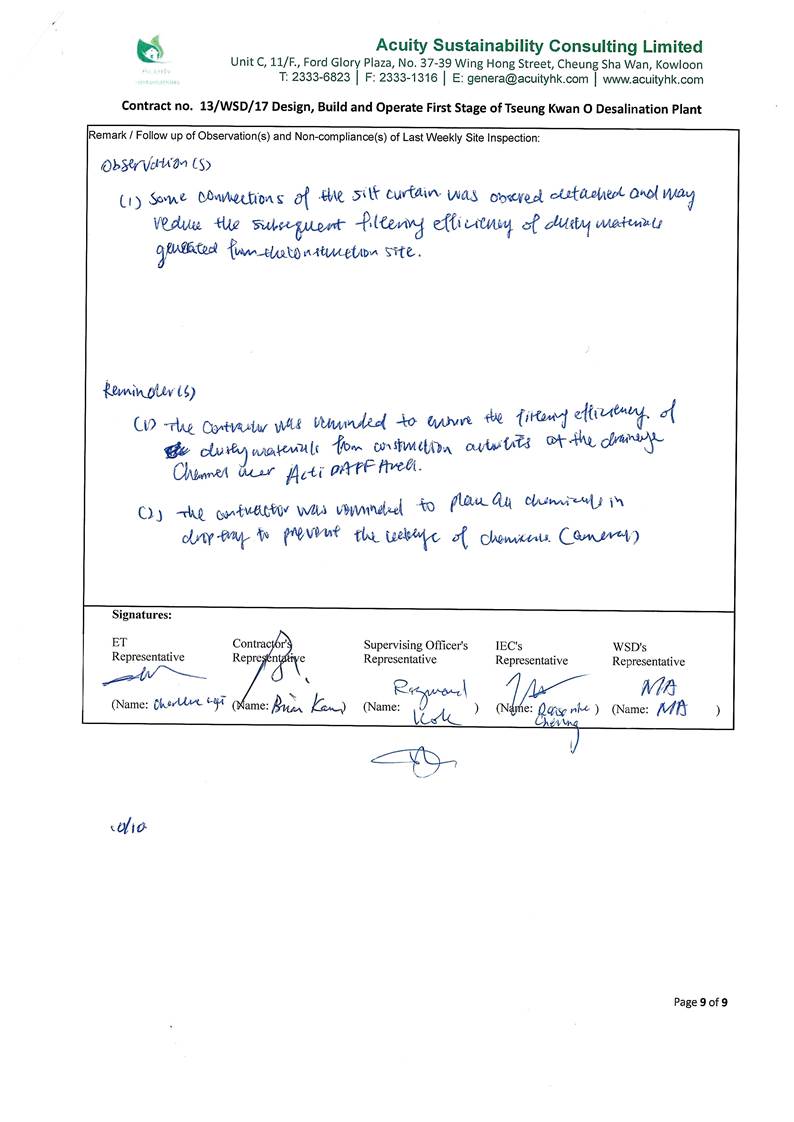 Acuity Sustainability Consulting Limited
Unit C, 11/F., Ford Glory Plaza, No. 37-39 Wing Hong Street, Cheung Sha Wan, Kowloon
T: 2333-6823 | F: 2333-1316 | E: genera@acuityhk.com | www.acuityhk.com
Contract no. 13/WSD/17 Design, Build and Operate First Stage of Tseung Kwan O Desalination Plant
Remark / Follow up of Observation(s) and Non-compliance(s) of Last Weekly Site Inspection:
Observation(s)
(1) Some connections of the silt curtain was observed detached and may
reduce the subsequent filtering efficiency of dusty materials
generated from the construction site.
Reminder(s)
(1) The Contractor was reminded to ensure the filtering efficiency of
dusty materials from construction activities at the drainage
Channel near Acti DAFF Area.
(2) The contractor was reminded to plan all chemicals in
drop tray to prevent the leakage of chemicals
Signatures:
ET
Representative
Contractor's
Representative
Supervising Officer's
Representative
IEC's
Representative
WSD's
Representative
NA
(Name: (Name: Brian Kam) (Name: Raymond Kok ) (Name: Cheung ) (Name: NA )
10/10
Page 9 of 9